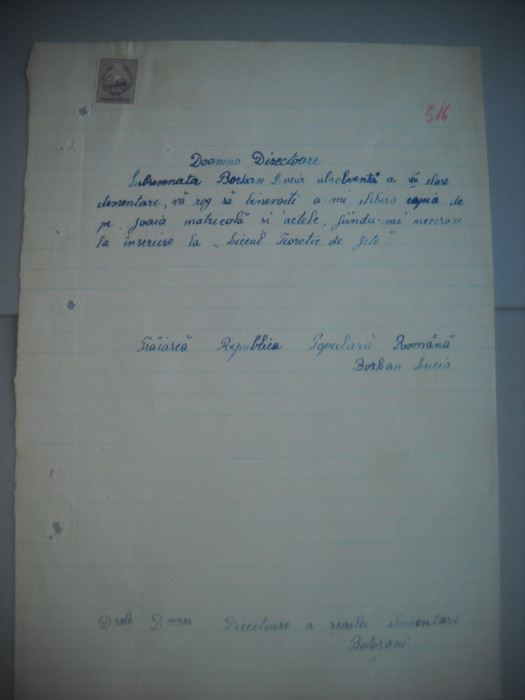 316
Doamno Directoare
Subsemnata Borban Lucia absolventă a VII clase
elementare, vă rog să binevoiti a-mi elibera copia de
pe „foaia matricolă" si actele, fiindu-mi necesare
la inscriere la „Liceul Teoretic de fete".
Trăiască Republica Populară Română
Borban Lucia
D-sale D-nei Directoare a școalei elementare
Botoșani